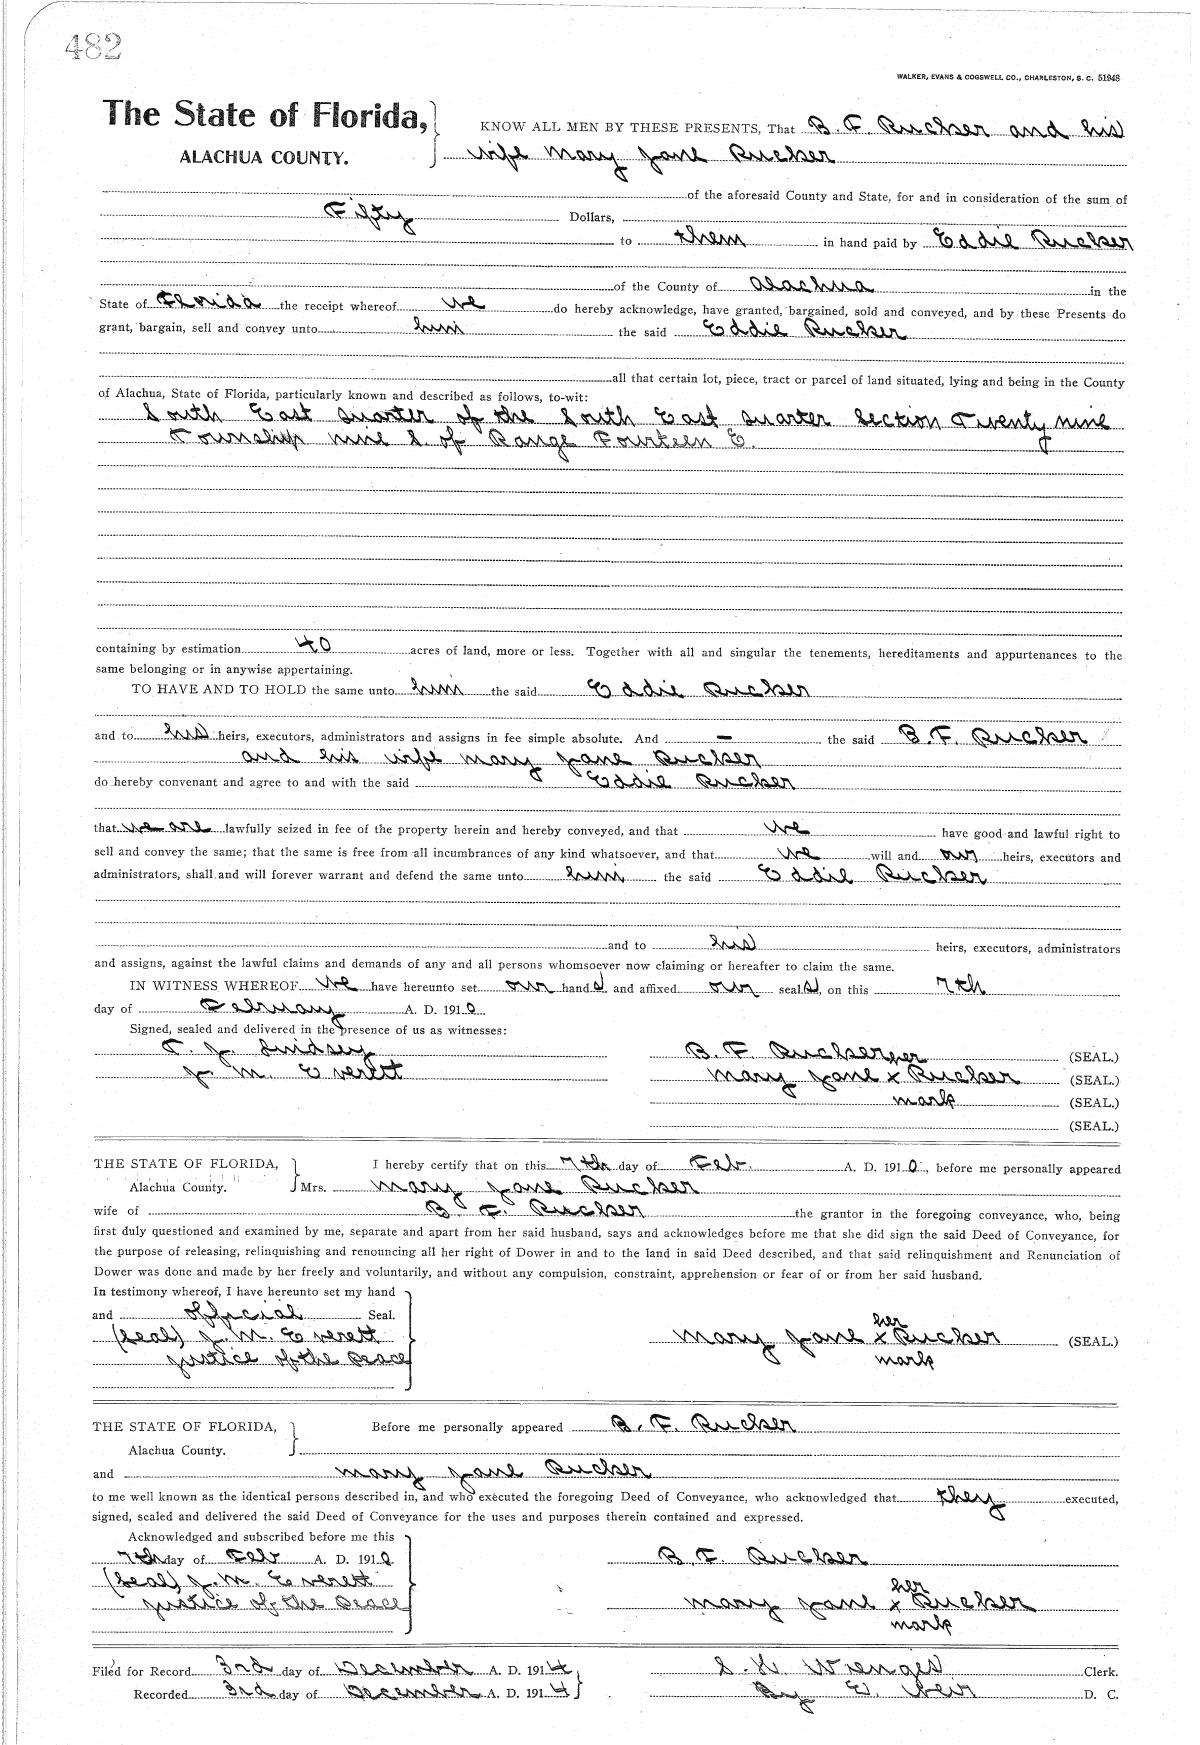 482
WALKER, EVANS & COGSWELL CO., CHARLESTON, S. C. 51948
The State of Florida,
ALACHUA COUNTY.
KNOW ALL MEN BY THESE PRESENTS, That B. F. Rucker and his
wife Mary Jane Rucker
of the aforesaid County and State, for and in consideration of the sum of
Fifty Dollars,
to them in hand paid by Eddie Rucker
of the County of Alachua in the
State of Florida the receipt whereof we do hereby acknowledge, have granted, bargained, sold and conveyed, and by these Presents do
grant, bargain, sell and convey unto him the said Eddie Rucker
all that certain lot, piece, tract or parcel of land situated, lying and being in the County
of Alachua, State of Florida, particularly known and described as follows, to-wit:
South East quarter of the South East quarter Section Twenty nine
Township nine S. of Range Fourteen E.
containing by estimation 40 acres of land, more or less. Together with all and singular the tenements, hereditaments and appurtenances to the
same belonging or in anywise appertaining.
TO HAVE AND TO HOLD the same unto him the said Eddie Rucker
and to his heirs, executors, administrators and assigns in fee simple absolute. And — the said B. F. Rucker
and his wife Mary Jane Rucker
do hereby convenant and agree to and with the said Eddie Rucker
that we are lawfully seized in fee of the property herein and hereby conveyed, and that we have good and lawful right to
sell and convey the same; that the same is free from all incumbrances of any kind whatsoever, and that we will and our heirs, executors and
administrators, shall and will forever warrant and defend the same unto him the said Eddie Rucker
and to his heirs, executors, administrators
and assigns, against the lawful claims and demands of any and all persons whomsoever now claiming or hereafter to claim the same.
IN WITNESS WHEREOF we have hereunto set our hands and affixed our seals, on this 7th
day of February A. D. 1910
Signed, sealed and delivered in the presence of us as witnesses:
T. J. Lindsey B. F. Rucker (SEAL.)
her
J. M. Everett Mary Jane x Rucker (SEAL.)
mark (SEAL.)
(SEAL.)
THE STATE OF FLORIDA, I hereby certify that on this 7th day of Feb. A. D. 1910, before me personally appeared
Alachua County. Mrs. Mary Jane Rucker
wife of B. F. Rucker the grantor in the foregoing conveyance, who, being
first duly questioned and examined by me, separate and apart from her said husband, says and acknowledges before me that she did sign the said Deed of Conveyance, for
the purpose of releasing, relinquishing and renouncing all her right of Dower in and to the land in said Deed described, and that said relinquishment and Renunciation of
Dower was done and made by her freely and voluntarily, and without any compulsion, constraint, apprehension or fear of or from her said husband.
In testimony whereof, I have hereunto set my hand
and official Seal.
her
(Seal) J. M. Everett Mary Jane x Rucker (SEAL.)
Justice of the Peace mark
THE STATE OF FLORIDA, Before me personally appeared B. F. Rucker
Alachua County.
and Mary Jane Rucker
to me well known as the identical persons described in, and who executed the foregoing Deed of Conveyance, who acknowledged that they executed,
signed, sealed and delivered the said Deed of Conveyance for the uses and purposes therein contained and expressed.
Acknowledged and subscribed before me this
7th day of Feb A. D. 1910 B F. Rucker
(Seal) J. M. Everett her
Justice of the Peace Mary Jane x Rucker
mark
Filed for Record 3rd day of December A. D. 1914 S. H. Wienges Clerk.
Recorded 3rd day of December A. D. 1914 By E. Weir D. C.